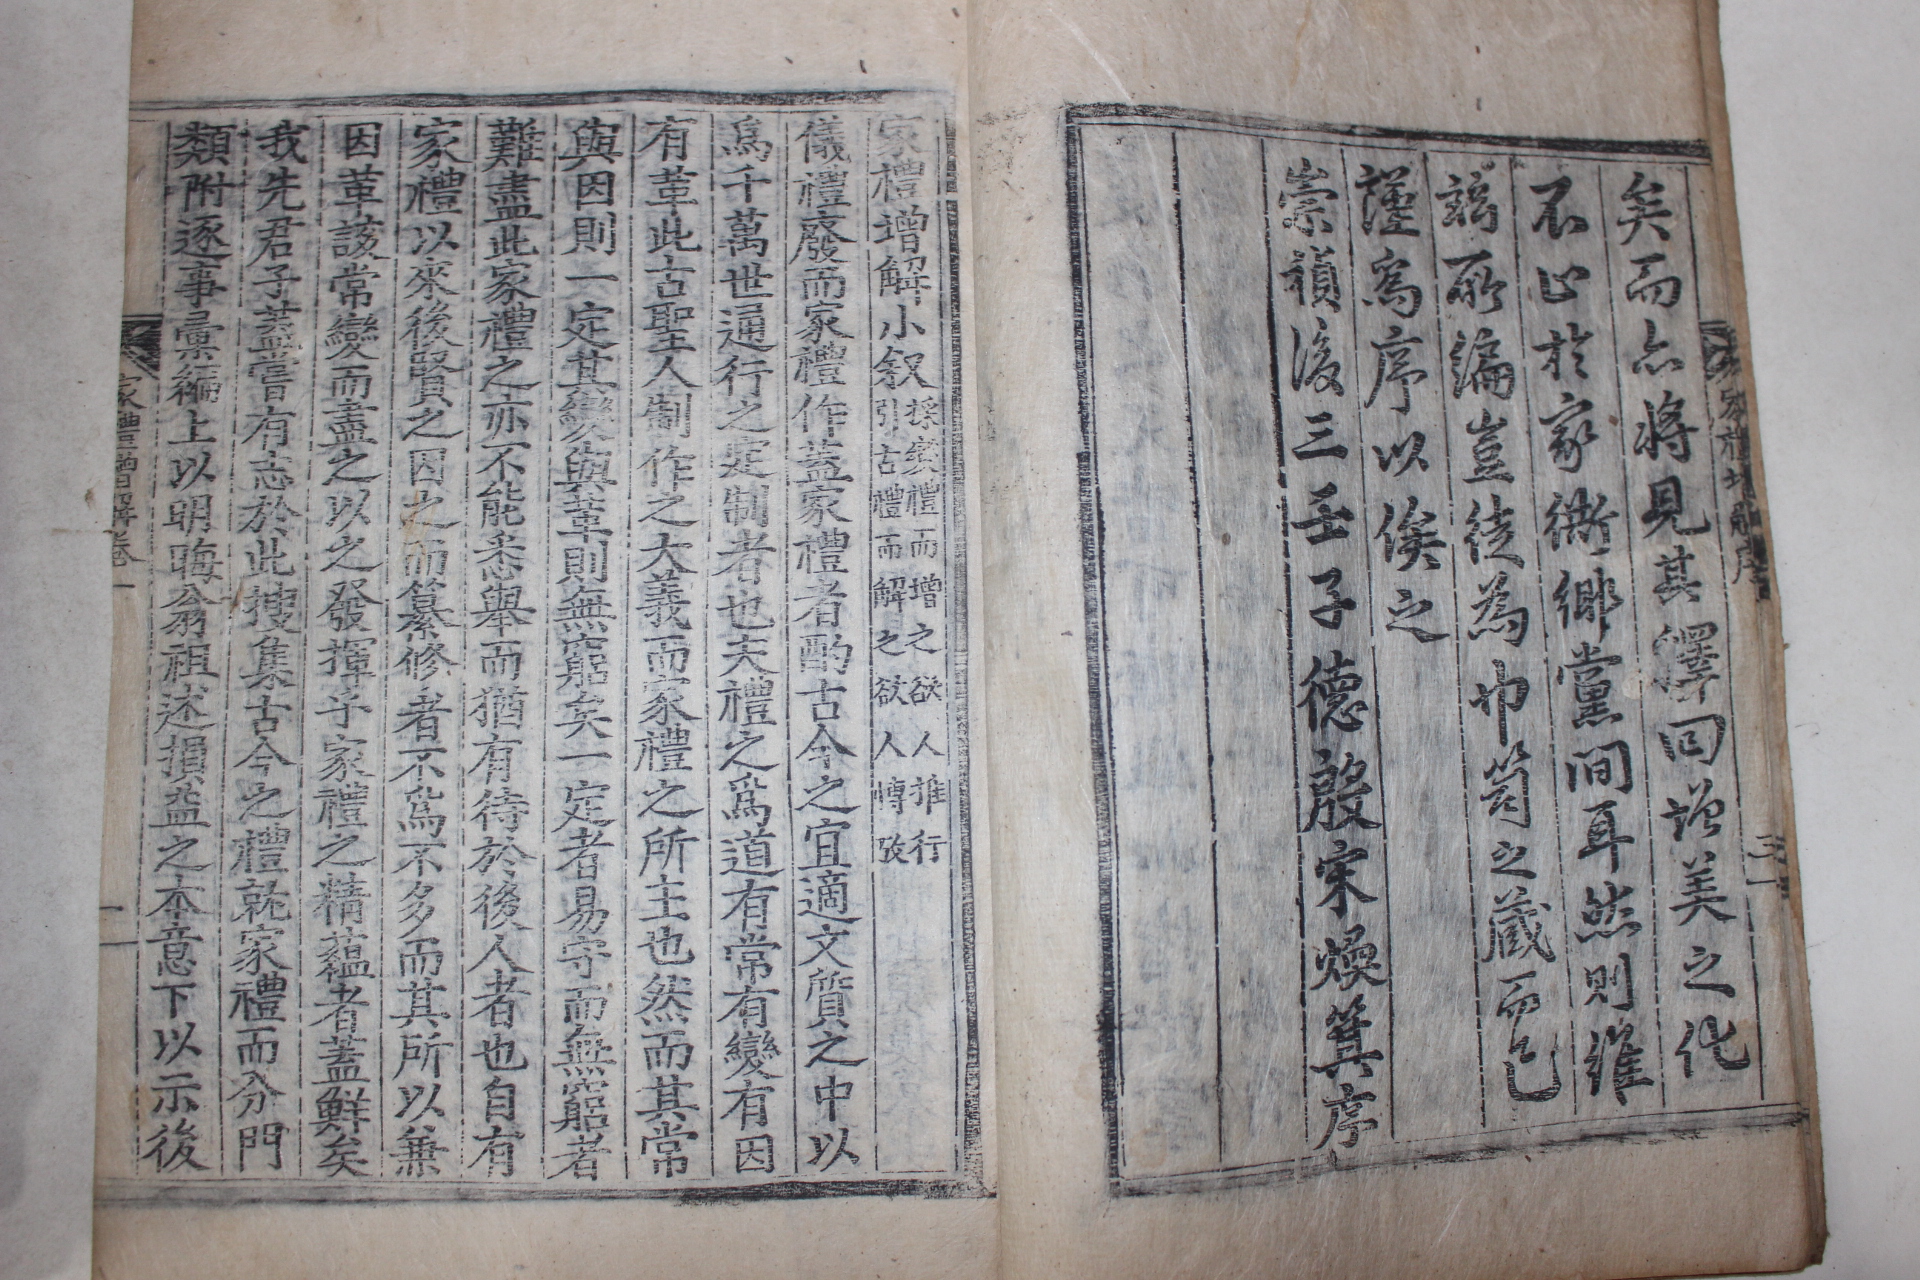 矣而亦將見其繹同增美之化
不止於家衖鄉黨間耳然則維
所編豈徒為巾笥之藏而已
謹為序以俟之
崇禎後三壬子德殷宋煥箕序
家禮增解序
三
家禮增解小叙 採變禮而增之欲人推行 引古禮而解之欲人博攷
儀禮廢而家禮作蓋家禮者酌古今之宜適文質之中以
爲千萬世通行之定制者也夫禮之爲道有常有變有因
有革此古聖人制作之大義而家禮之所主也然而其常
與因則一定其變與革則無窮矣一定者易守而無窮者
難盡此家禮之亦不能悉舉而猶有待於後人者也自有
家禮以來後賢之因之而纂修者不爲不多而其所以兼
因革該常變而盡之以之發揮乎家禮之精蘊者蓋鮮矣
我先君子蓋嘗有志於此搜集古今之禮就家禮而分門
類附逐事彙編上以明晦翁祖述損益之本意下以示後
家禮增解卷一
一